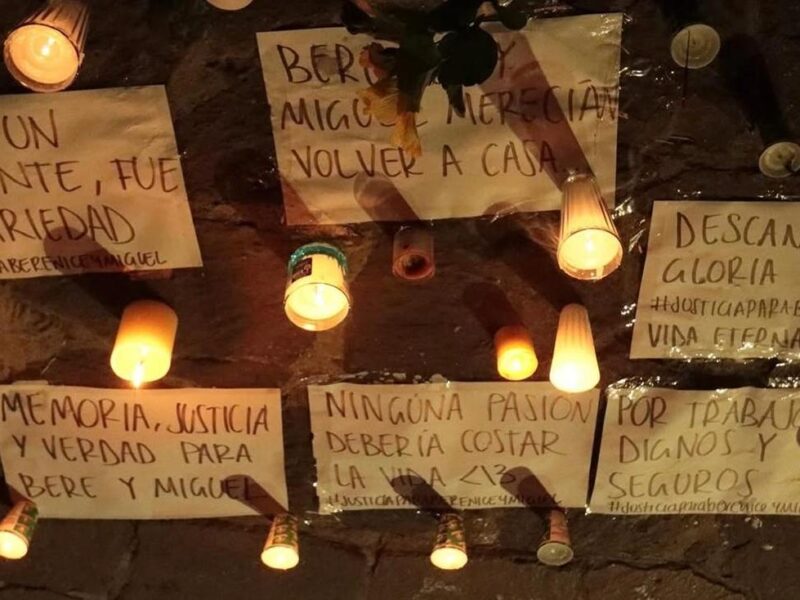 UN
NTE, FUE
ARIEDAD
ABERENICEYMIGUEL
BERE Y
MIGUEL MERECIÁN
VOLVER A CASA
DESCAN
GLORIA
#JUSTICIAPARAB
VIDA ETERNA
MEMORIA, JUSTICIA
Y VERDAD PARA
BERE Y MIGUEL
NINGÚNA PASIÓN
DEBERÍA COSTAR
LA VIDA <\3
#JUSTICIAPARABERENICEYMIGUEL
POR TRABAJO
DIGNOS Y
SEGUROS
#JUSTICIAPARABERENICEYMI